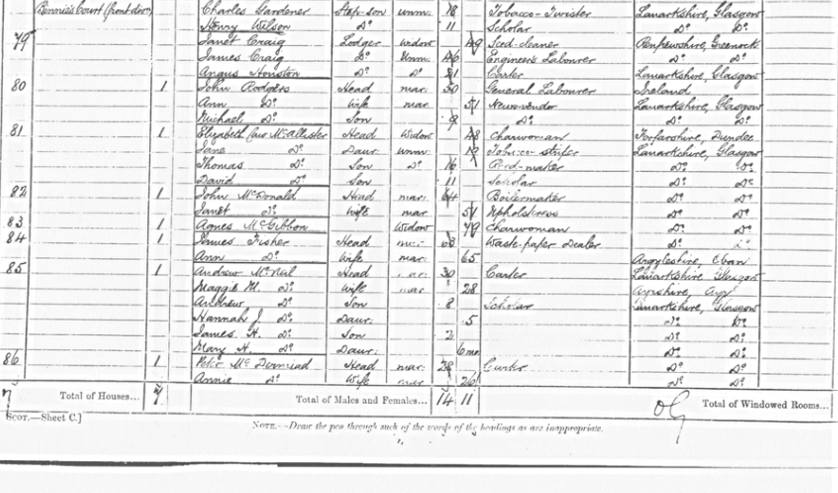 Bennie's Court (front door) Charles Gardener Step-son unm. 18 Tobacco-Twister Lanarkshire, Glasgow
Henry Wilson Do 11 Scholar Do Do
79 Janet Craig Lodger Widow 49 Seed-cleaner Renfrewshire, Greenock
James Craig Do Unm. 46 Engineer's Labourer Do Do
Angus Houston Do Do 51 Carter Lanarkshire, Glasgow
80 1 John Rodgers Head mar. 50 General Labourer Ireland
Ann Do Wife mar 51 Newsvendor Lanarkshire, Glasgow
Michael Do Son 9 Do Do Do
81 1 Elizabeth McAllister Head Widow 48 Charwoman Forfarshire, Dundee
Jane Do Daur. unm. 19 Tobacco-striper Lanarkshire, Glasgow
Thomas Do Son Do 16 Do Do
David Do Son 11 Scholar Do Do
82 1 John McDonald Head mar. 64 Boilermaker Do Do
Janet Do Wife mar 51 Do Do
83 1 Agnes McGibbon Widow 49 Charwoman Do Do
84 1 James Fisher Head 68 Waste-paper Dealer Do
Ann Do Wife mar. 65 Argyleshire, Oban
85 1 Andrew Head mar. 30 Carter Lanarkshire Glasgow
Maggie M. Do Wife mar 28 Ayrshire, Ayr
Andrew Do Son 8 Scholar Lanarkshire, Glasgow
Hannah J. Do Daur. 5 Do Do
James H. Do Son 2 Do Do
Mary H. Do Daur. 6 mo Do Do
86 1 Peter McDermiad Head mar. 28 Carter Do Do
Annie Do Wife mar 26 Do Do
7 Total of Houses... 7 Total of Males and Females... 14 11 Total of Windowed Rooms...
Scot.—Sheet C.]
NOTE.—Draw the pen through such of the words of the headings as are inappropriate.